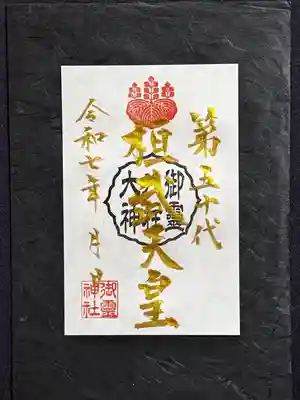 第五十代
桓武天皇
御靈
大神
令和七年 月 日
御靈
神社